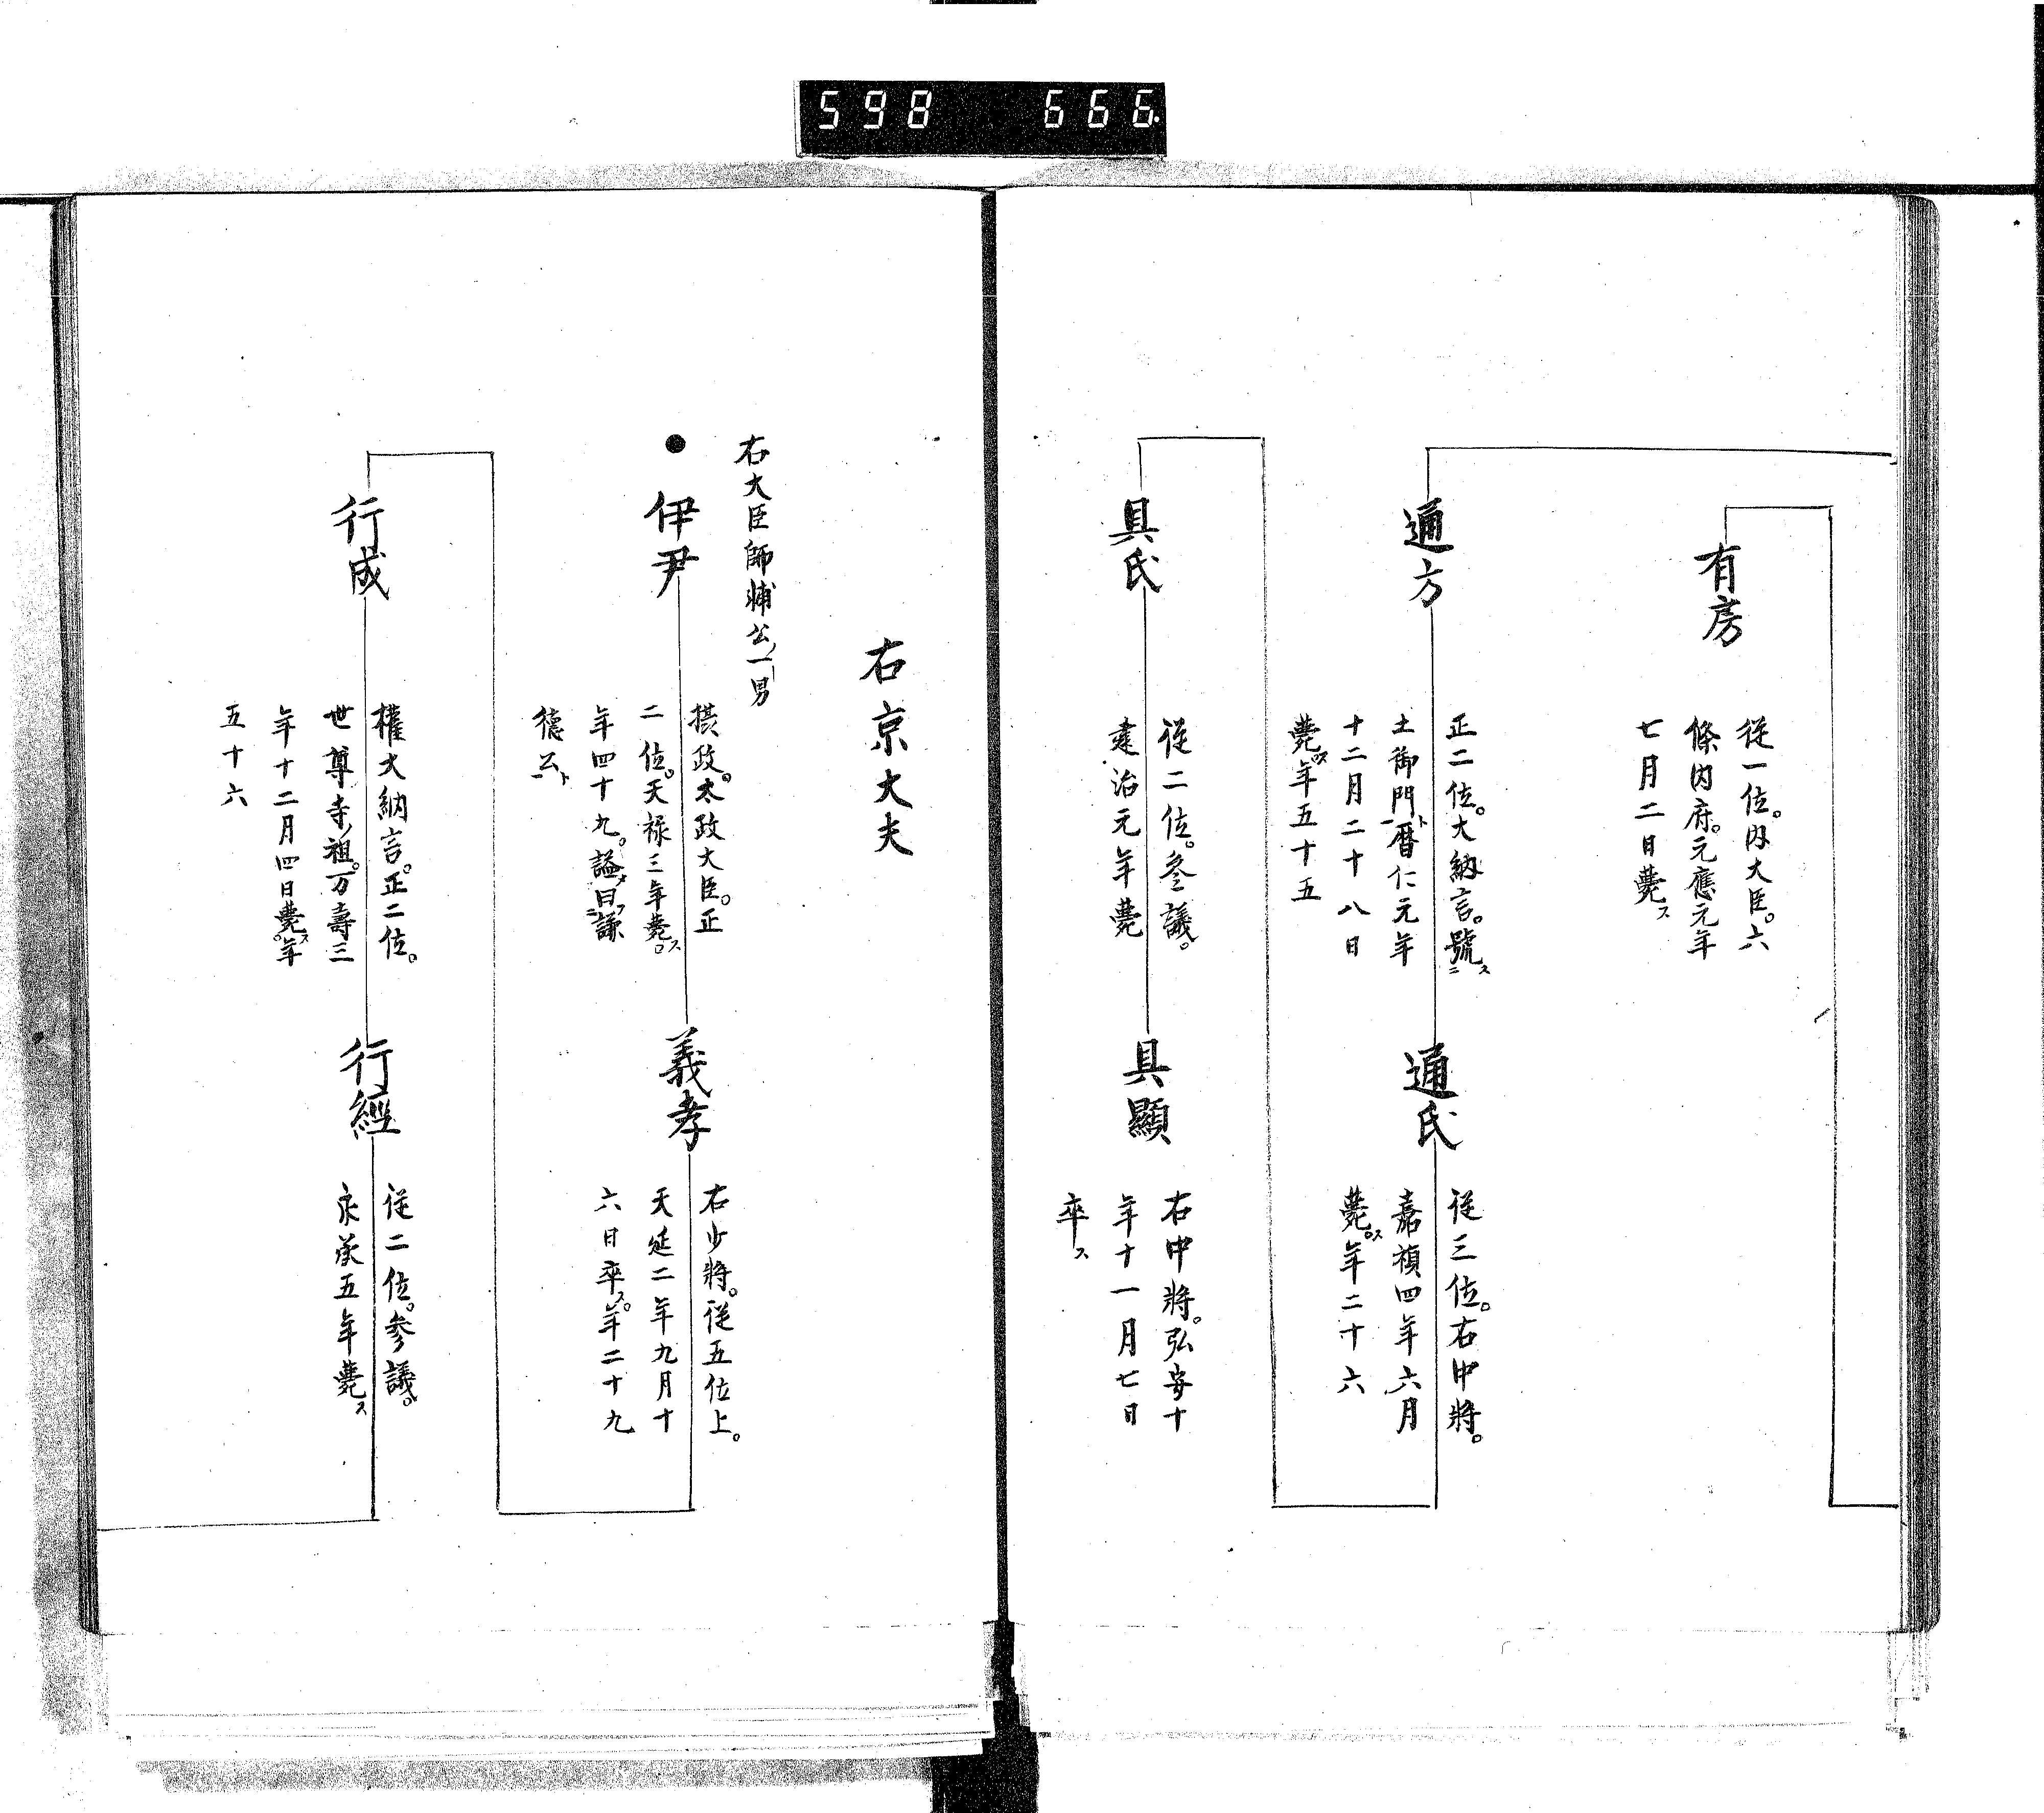 598 666
有房
從一位。內大臣。六
條內府。元應元年
七月二日薨ス
通方
正二位。大納言。號ス二
土御門ト一暦仁元年
十二月二十八日
薨ス。年五十五
通氏
從三位。右中將。
嘉禎四年六月
薨ス。年二十六
具氏
從二位。參議。
建治元年薨
具顯
右中將。弘安十
年十一月七日
卒ス
右京大夫
右大臣師輔公ノ一男
●伊尹
摂政。太政大臣。正
二位。天祿三年薨ス。
年四十九。謚メ曰フ二謙
德公ト一
義孝
右少將。從五位上。
天延二年九月十
六日卒ス。年二十九
行成
權大納言。正二位。
世尊寺ノ祖。万壽三
年十二月四日薨ス。年
五十六
行經
從二位。參議。
永承五年薨ス